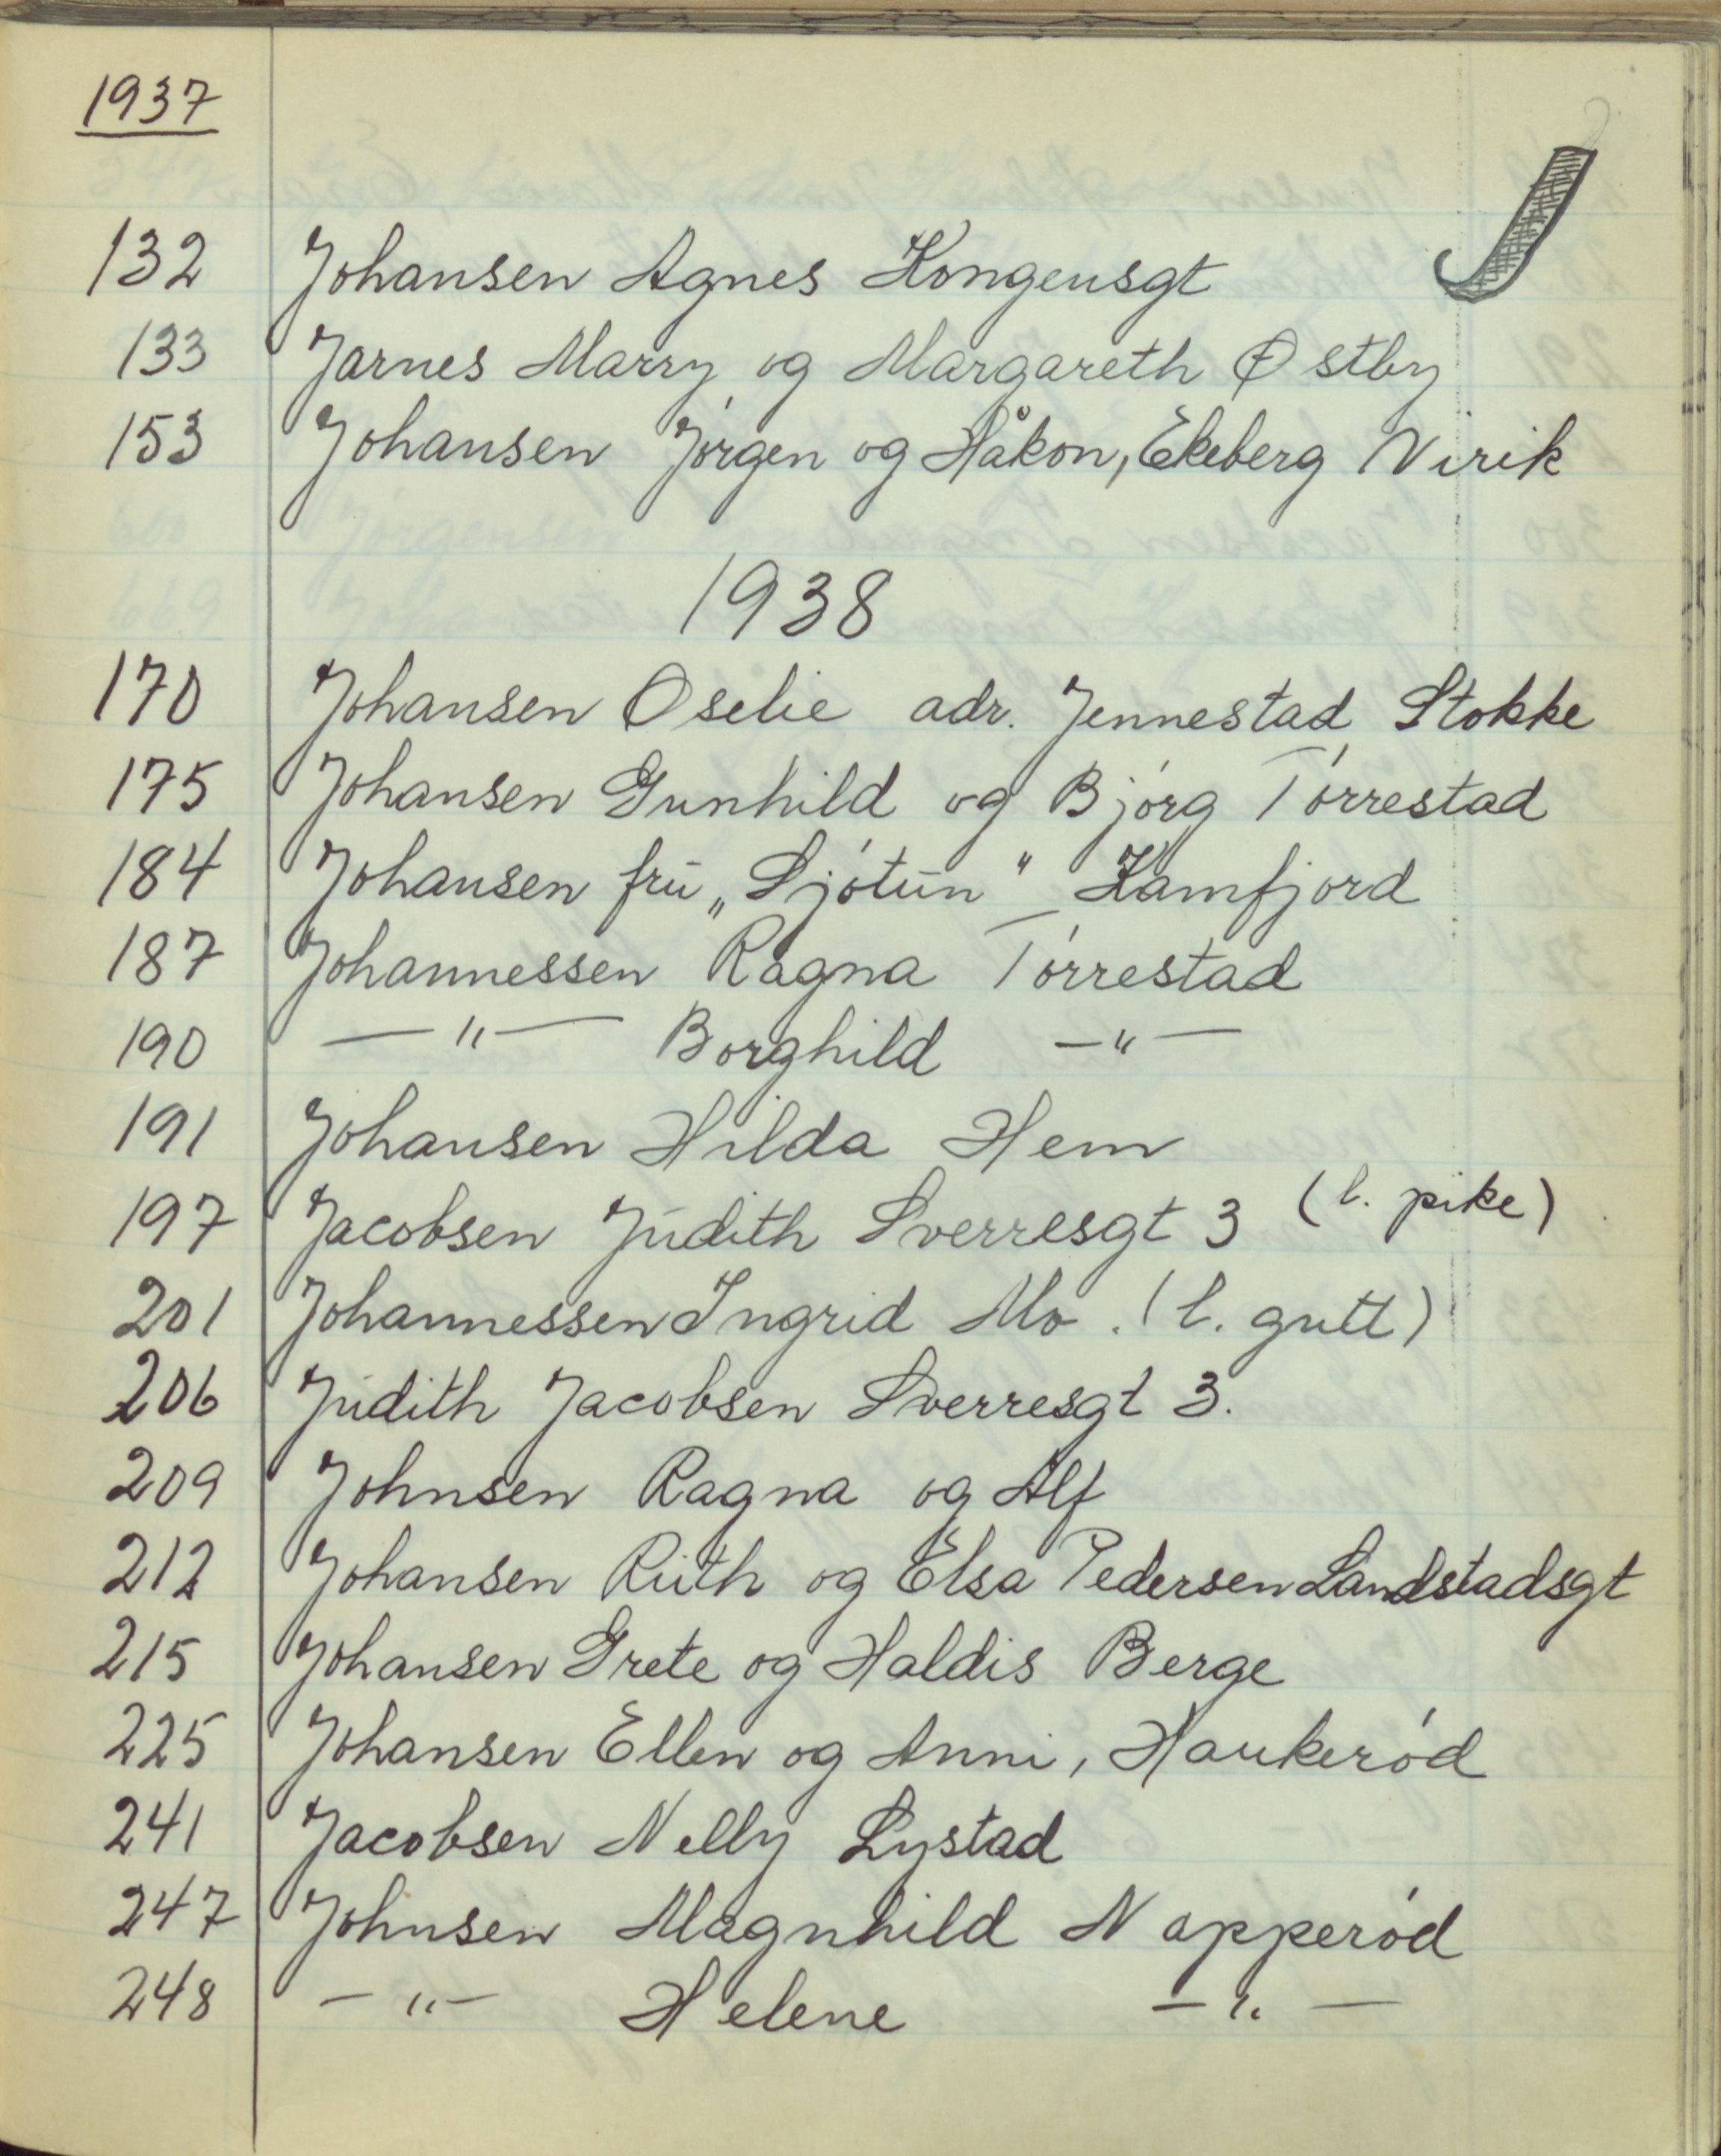 1937
J
132 Johansen Agnes Kongensgt
133 Jarnes Marry og Margareth Østby
153 Johansen Jórgen og Håkon, Ekeberg Virik
1938
170 Johansen Oselie adr. Jennestad Stokke
175 Johansen Gunhild og Bjórg Tórrestad
184 Johansen frū „Sjótūn" Kamfjord
187 Johannessen Ragna Tórrestad
190 —"— Borghild —"—
191 Johansen Hilda Hem
197 Jacobsen Judith Sverresgt 3 (l. pike)
201 Johannessen Ingrid Mo. (l. gutt)
206 Judith Jacobsen Sverresgt 3.
209 Johnsen Ragna og Alf
212 Johansen Ruth og Elsa Pedersen Landstadsgt
215 Johansen Grete og Haldis Berge
225 Johansen Ellen og Anni, Haukeród
241 Jacobsen Nelly Lystad
247 Johnsen Magnhild Napperód
248 —"— Helene —"—